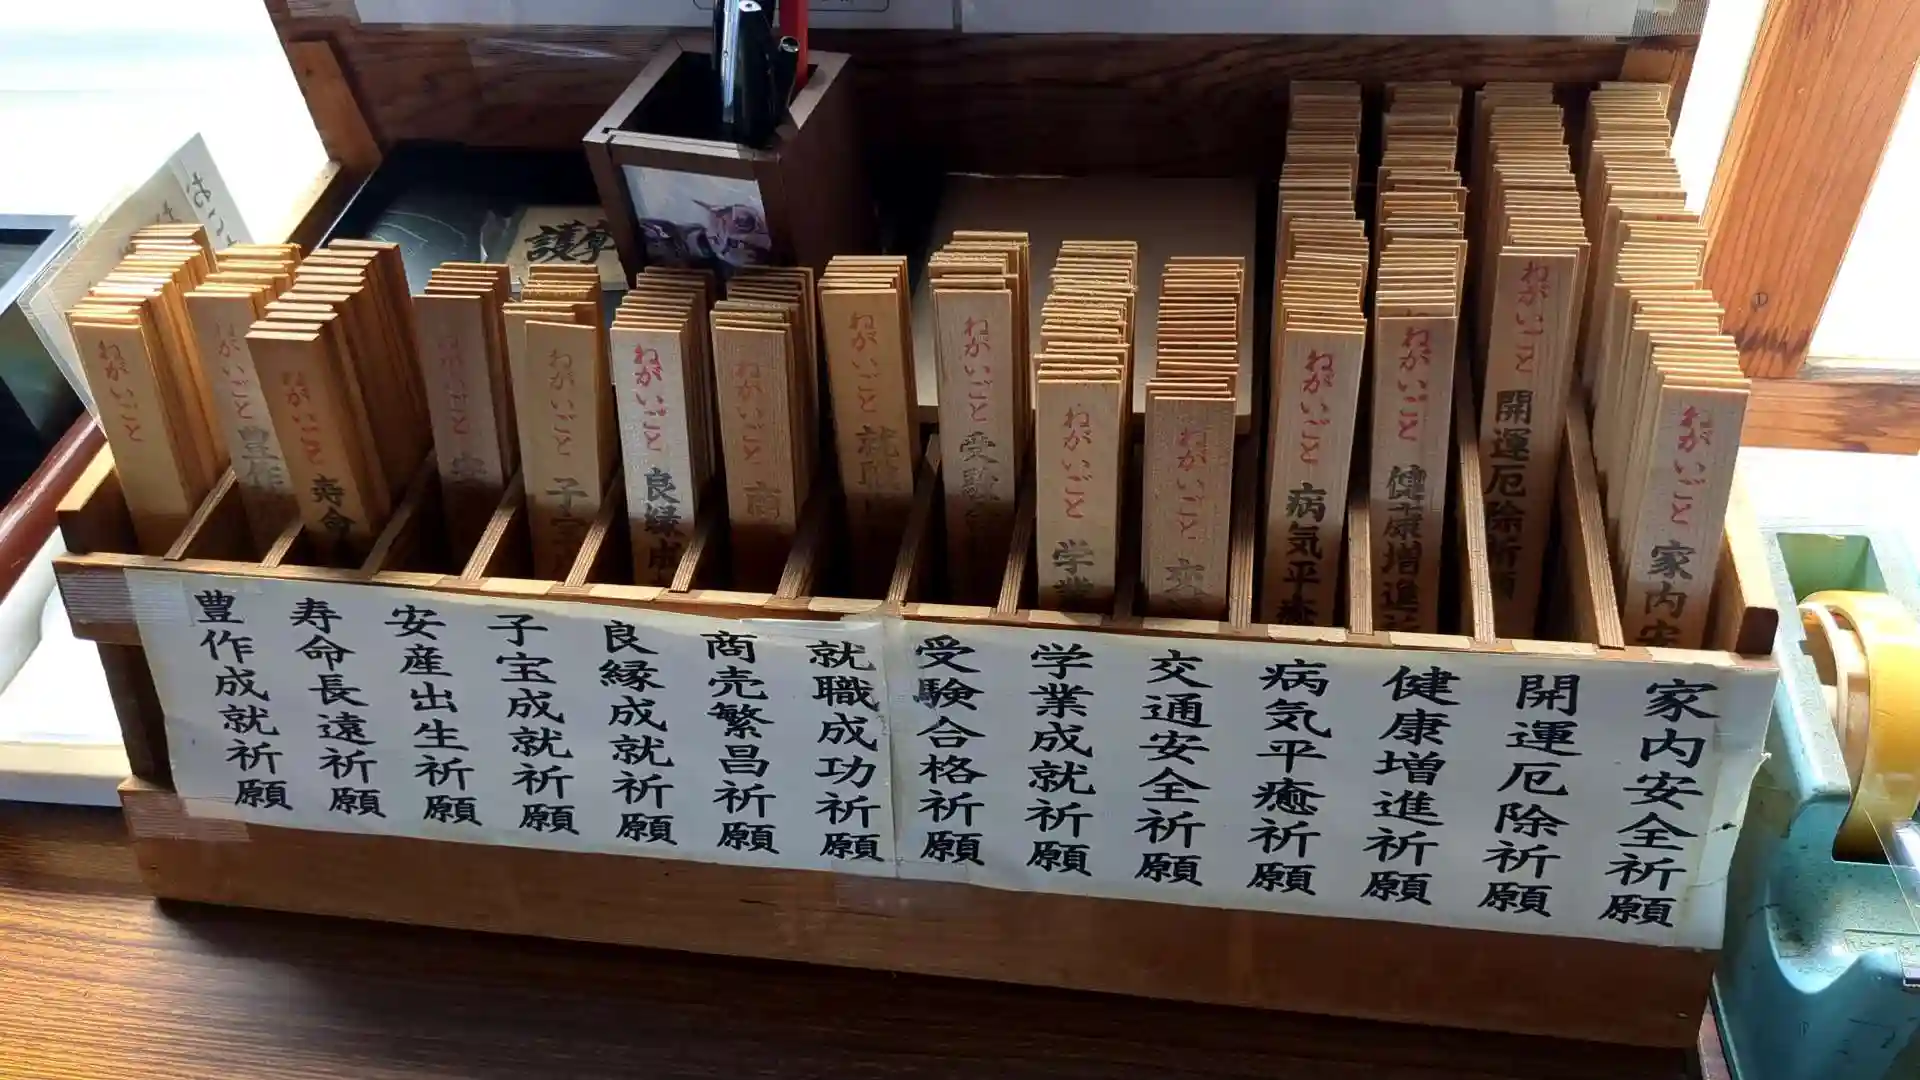 家内安全祈願
開運厄除祈願
健康増進祈願
病気平癒祈願
交通安全祈願
学業成就祈願
受験合格祈願
就職成功祈願
商売繁昌祈願
良縁成就祈願
子宝成就祈願
安産出生祈願
寿命長遠祈願
豊作成就祈願
ねがいごと 家内安
ねがいごと 開運厄除祈
ねがいごと 健康増進祈
ねがいごと 病気平癒
ねがいごと 交
ねがいごと 学業
ねがいごと 受験
ねがいごと 就職
ねがいごと 商
ねがいごと 良縁成
ねがいごと 子宝
ねがいごと 安
ねがいごと 寿命
ねがいごと 豊作
ねがいごと
護